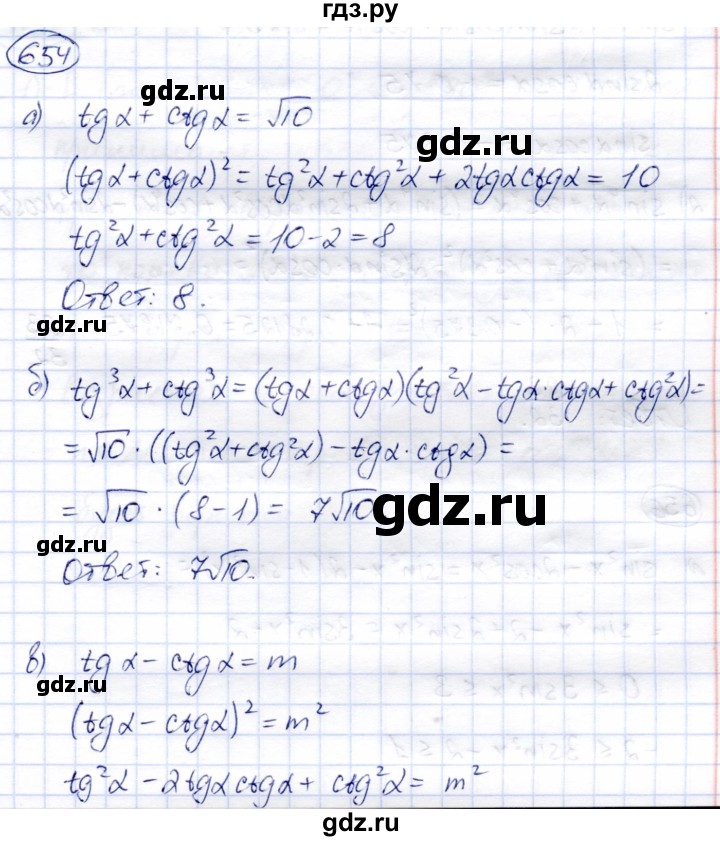 гдз.ру
654
gdz.ru
а) tgα + ctgα = √10
gdz.ru
(tgα + ctgα)² = tg²α + ctg²α + 2tgα ctgα = 10
tg²α + ctg²α = 10 - 2 = 8
Ответ: 8.
gdz.ru
б) tg³α + ctg³α = (tgα + ctgα)(tg²α - tgα·ctgα + ctg²α) =
= √10 · ((tg²α + ctg²α) - tgα · ctgα) =
= √10 · (8 - 1) = 7√10
gdz.ru
gdz.ru
Ответ: 7√10.
в) tgα - ctgα = m
gdz.ru
(tgα - ctgα)² = m²
tg²α - 2tgα ctgα + ctg²α = m²
gdz.ru